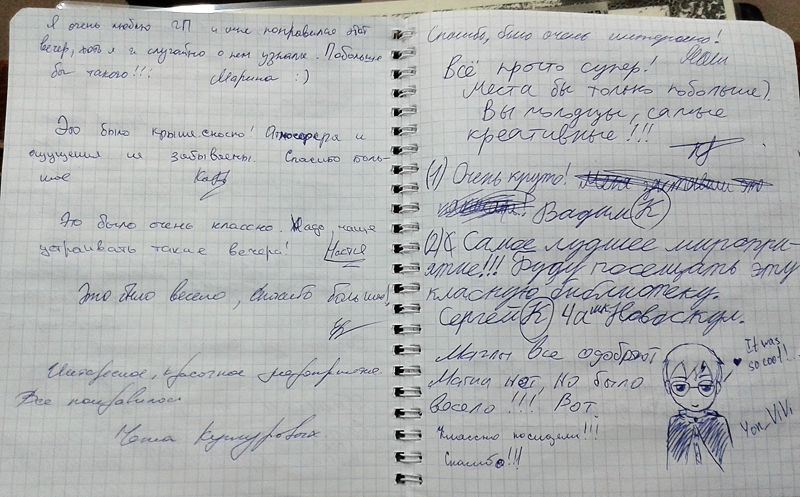 Я очень люблю ГП и мне понравился этот
вечер, хоть я и случайно о нем узнала. Побольше
бы такого!!! Марина :)
Это было крышесносно! Атмосфера и
ощущения не забываемы. Спасибо боль-
шое Катя
Это было очень классно. Надо чаще
устраивать такие вечера! Настя
Это было весело, спасибо большое!
Интересное, красочное мероприятие.
Все понравилось
Спасибо, было очень интересно!
Всё просто супер!
Места бы только побольше).
Вы молодцы, самые
креативные!!!
(1) Очень круто! Меня заставили это
Вадим К
(2) Самое лудшее миропри-
ятие!!! Буду посещать эту
класную библиотеку.
Сергей К 4а шк Новоскул.
Маглы все одобряют
Магии нет, но было
весело!!! Вот.
Классно посидели!!!
Спасибо!!!
It was
so cool!
Yon_ViVi